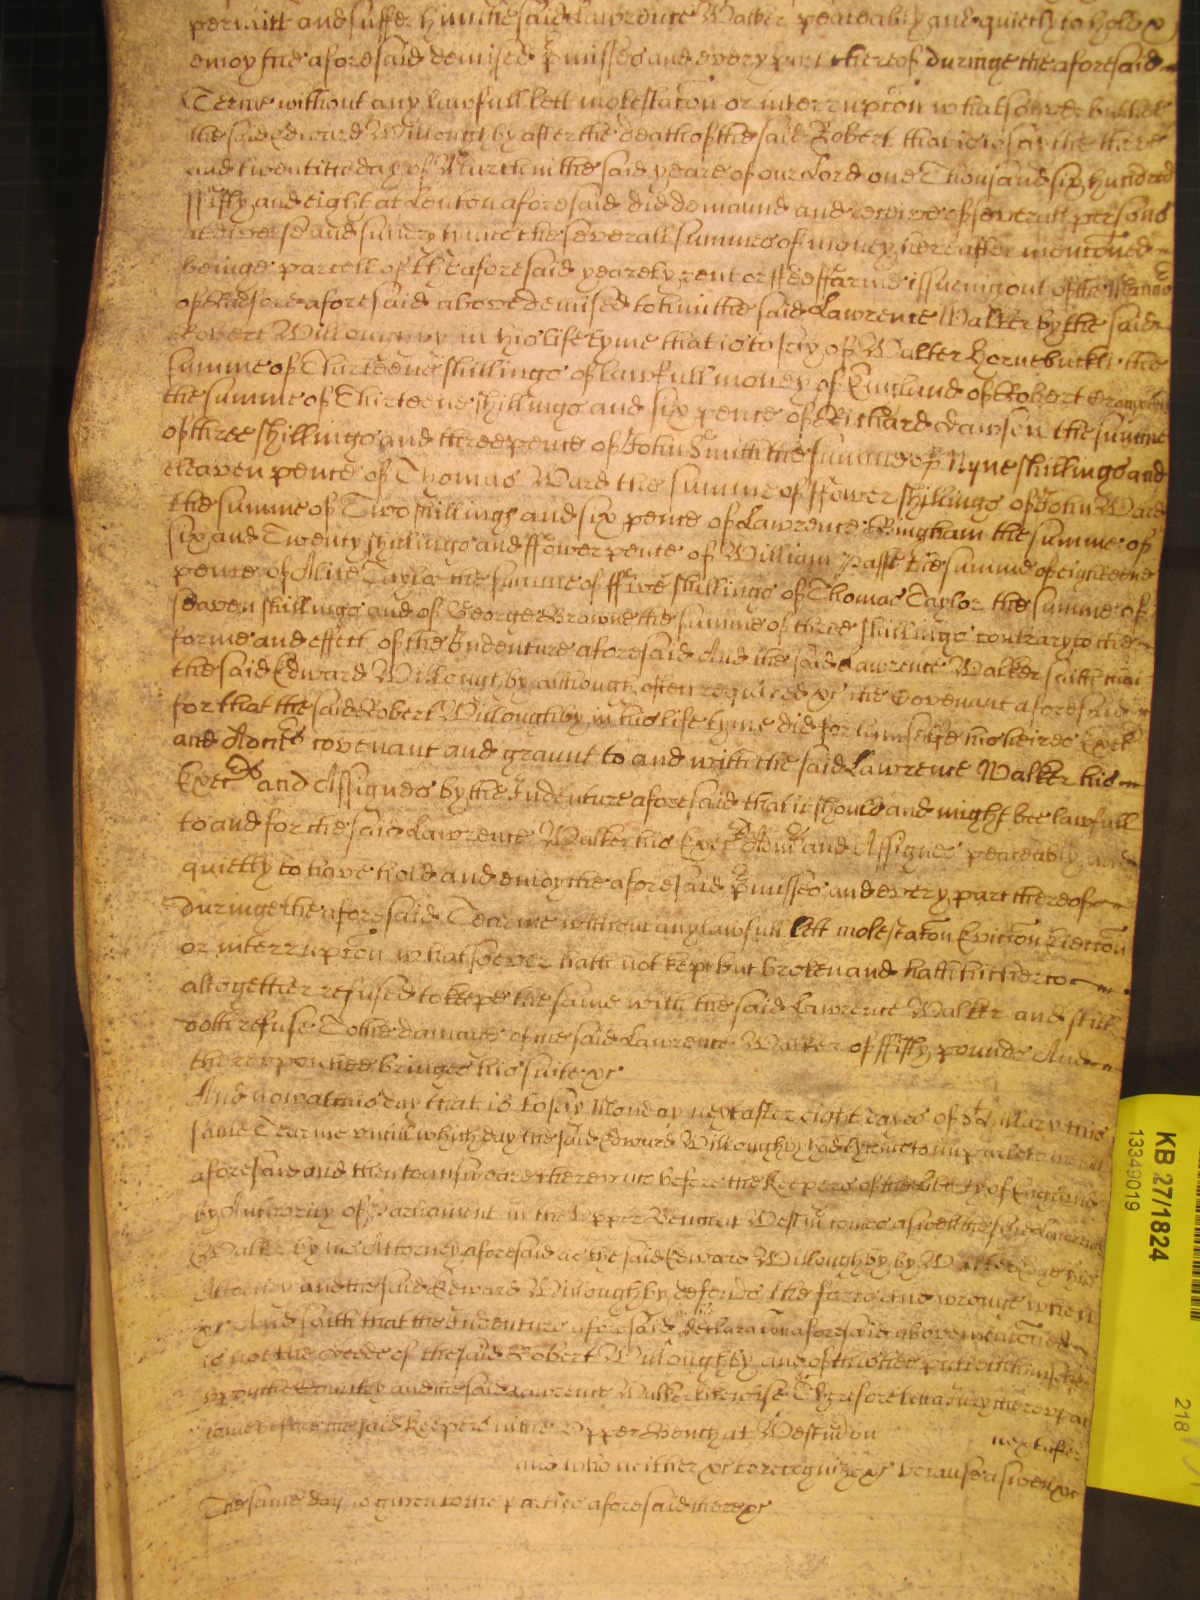 permitt and suffer him the said Lawrence Walker peaceably and quietly to hold &
enioy the aforesaid demised p'misses and every part thereof duringe the aforesaid
Terme without any lawfull lett molestac̄on or interrupc̄on whatsoever but hee
the said Edward Willoughby after the death of the said Robert that is to say the three
and twentithe day of March in the said yeare of our Lord one Thousand six hundred
ffifty and eight at Lenton aforesaid did demaund and receive of severall persons
at diverse and sundry times the severall summes of money hereafter menc̄oned
beinge parcell of the aforesaid yearely rent or ffeeffarme issueing out of the
of aforesaid above demised to him the said Lawrence Walker by the said
Robert Willoughby in his life tyme that is to say of Walter Hornebuckle the
summe of Thirteene shillings of lawfull money of England of Robert
the summe of Thirteene shillings and six pence of Richard Dawson the summe
of three shillings and three pence of John Smith the summe of Nyne shillings and
eleaven pence of Thomas Ward the summe of ffower shillings of John Ward
the summe of Two shillings and six pence of Lawrence Bingham the summe of
six and Twenty shillings and ffower pence of William the summe of eighteene
pence of Alice Taylor the summe of ffive shillings of Thomas Taylor the summe of
seaven shillings and of George Browne the summe of three shillings contrary to the
forme and effect of the Indenture aforesaid And the said Lawrence Walker saith that
the said Edward Willoughby although often required &c the Covenant aforesaid
for that the said Robert Willoughby in his life tyme did for himselfe his heires Exec
and Adm̄s covenant and graunt to and with the said Lawrence Walker his
Exec and Assignes by the Indenture aforesaid that it should and might bee lawfull
to and for the said Lawrence Walker his Exec Adm̄ and Assignes peaceably and
quietly to have hold and enioy the aforesaid p'misses and every part thereof
duringe the aforesaid Tearme without any lawfull lett molestac̄on Evicc̄on Eiecc̄on
or interrupc̄on whatsoever hath not kept but broken and hath hitherto
altogether refused to keepe the same with the said Lawrence Walker and still
doth refuse To the damage of the said Lawrence Walker of ffifty pounds And
thereupon hee bringes his suite &c
And now at this day that is to say Monday next after eight dayes of St Hillary this
same Tearme untill which day the said Edward Willoughby had lycence to imparle to the
aforesaid and then to answeare thereunto before the Keepers of the Liberty of England
by Authority of Parliament in the Upper Bench at Westm̄ comes aswell the said Lawrence
Walker by his Attorney aforesaid as the said Edward Willoughby by Walter his
Attorney and the said Edward Willoughby defends the force and wronge when
&c And saith that the Indenture aforesaid in the declarac̄on aforesaid above menc̄oned
is not the deede of the said Robert Willoughby and of this hee putteth himselfe
upon the Country and the said Lawrence Walker likewise Therefore lett a Jury thereupon
come before the said Keepers in the Upper Bench at Westm̄ on next after
and who neither &c to recognize &c because aswell &c
The same day is given to the parties aforesaid there &c
KB 27/1824
13349019
218